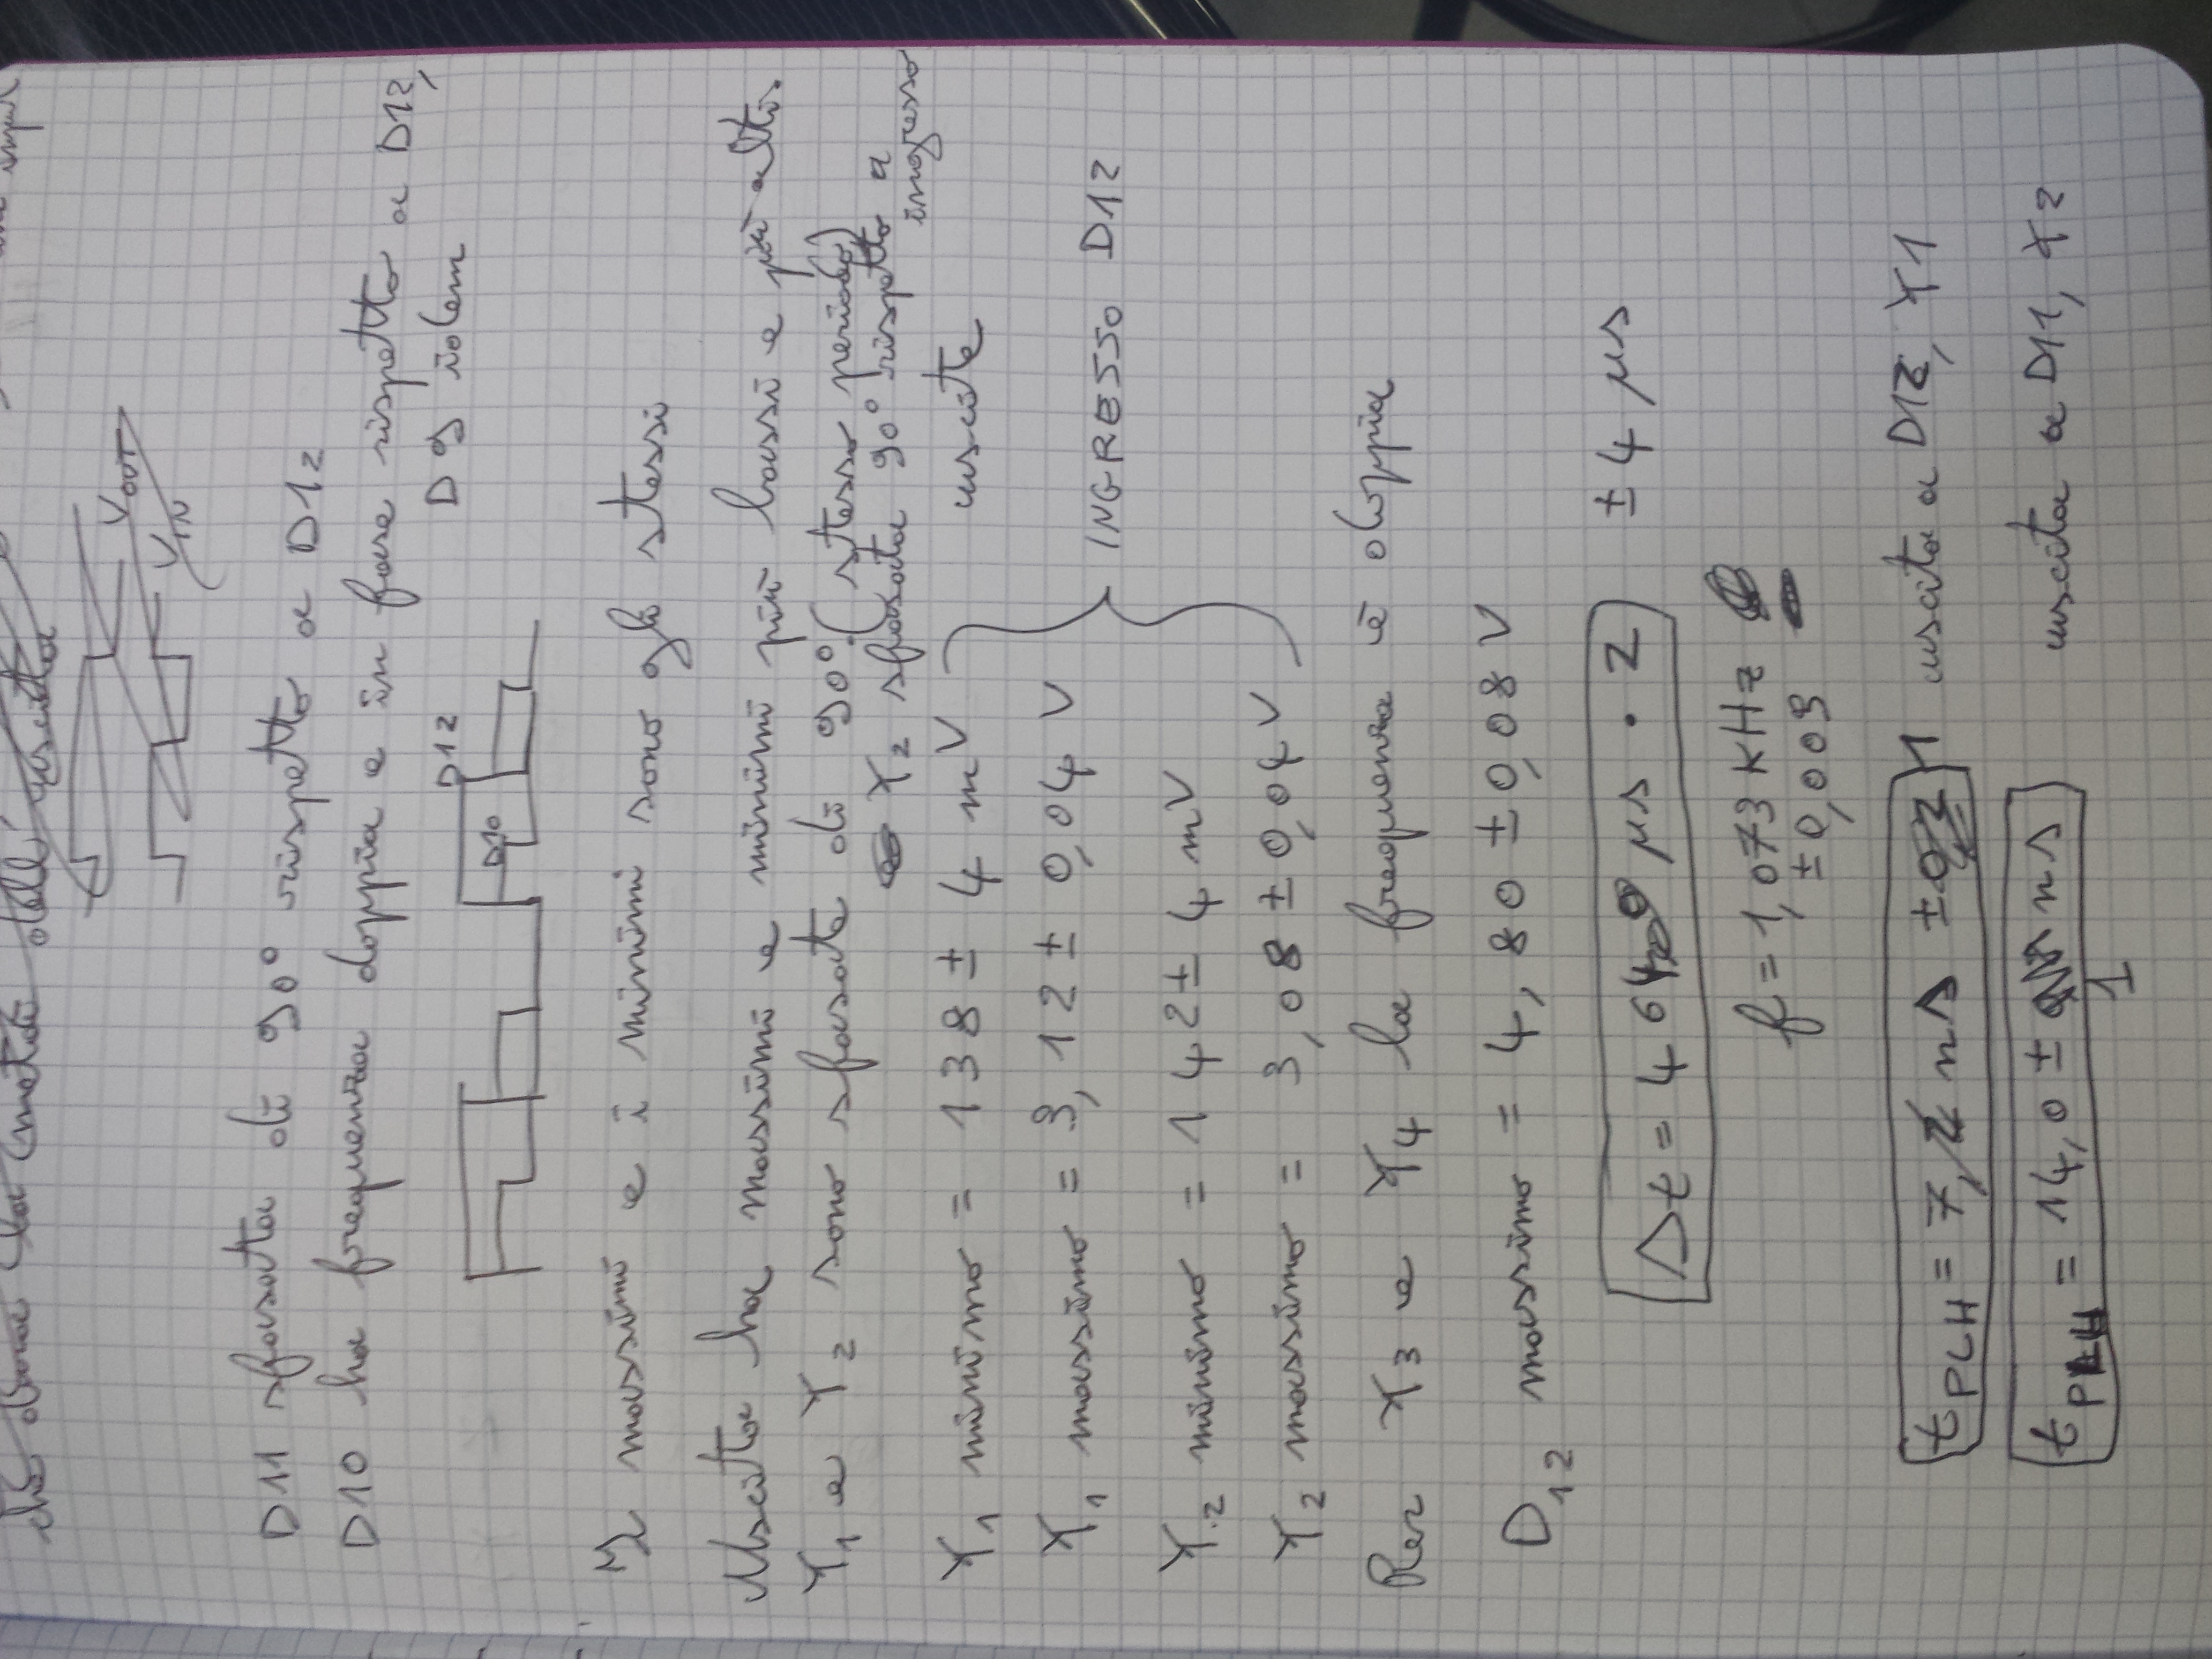 che dura la metà dell'uscita
V OUT
V IN
D11 sfasata di 90° rispetto a D12
D10 ha frequenza doppia e in fase rispetto a D12,
D9 idem
D12
D10
I massimi e i minimi sono gli stessi
Uscita ha massimi e minimi più bassi e più alti.
Y1 e Y2 sono sfasate di 90°. (stesso periodo)
Y2 sfasata 90° rispetto a
ingresso
Y1 minimo = 138 ± 4 mV
uscite
Y1 massimo = 3,12 ± 0,04 V
INGRESSO D12
Y2 minimo = 142 ± 4 mV
Y2 massimo = 3,08 ± 0,04 V
Per Y3 e Y4 la frequenza è doppia
D12 massimo = 4,80 ± 0,08 V
Δt = 464 μs · 2 ± 4 μs
f = 1,073 KHz
± 0,009
tPLH = 7, ns ± 1 uscita a D12, Y1
tPLH = 14,0 ± ns uscita a D11, Y2
1